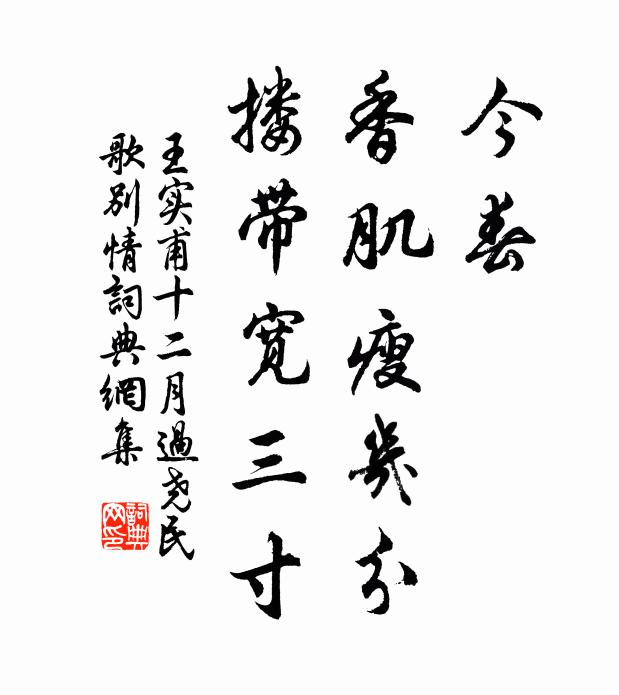 今春
香肌瘦幾分
搂带宽三寸
王实甫十二月過尧民
歌别情詞典網集
詞典
网印